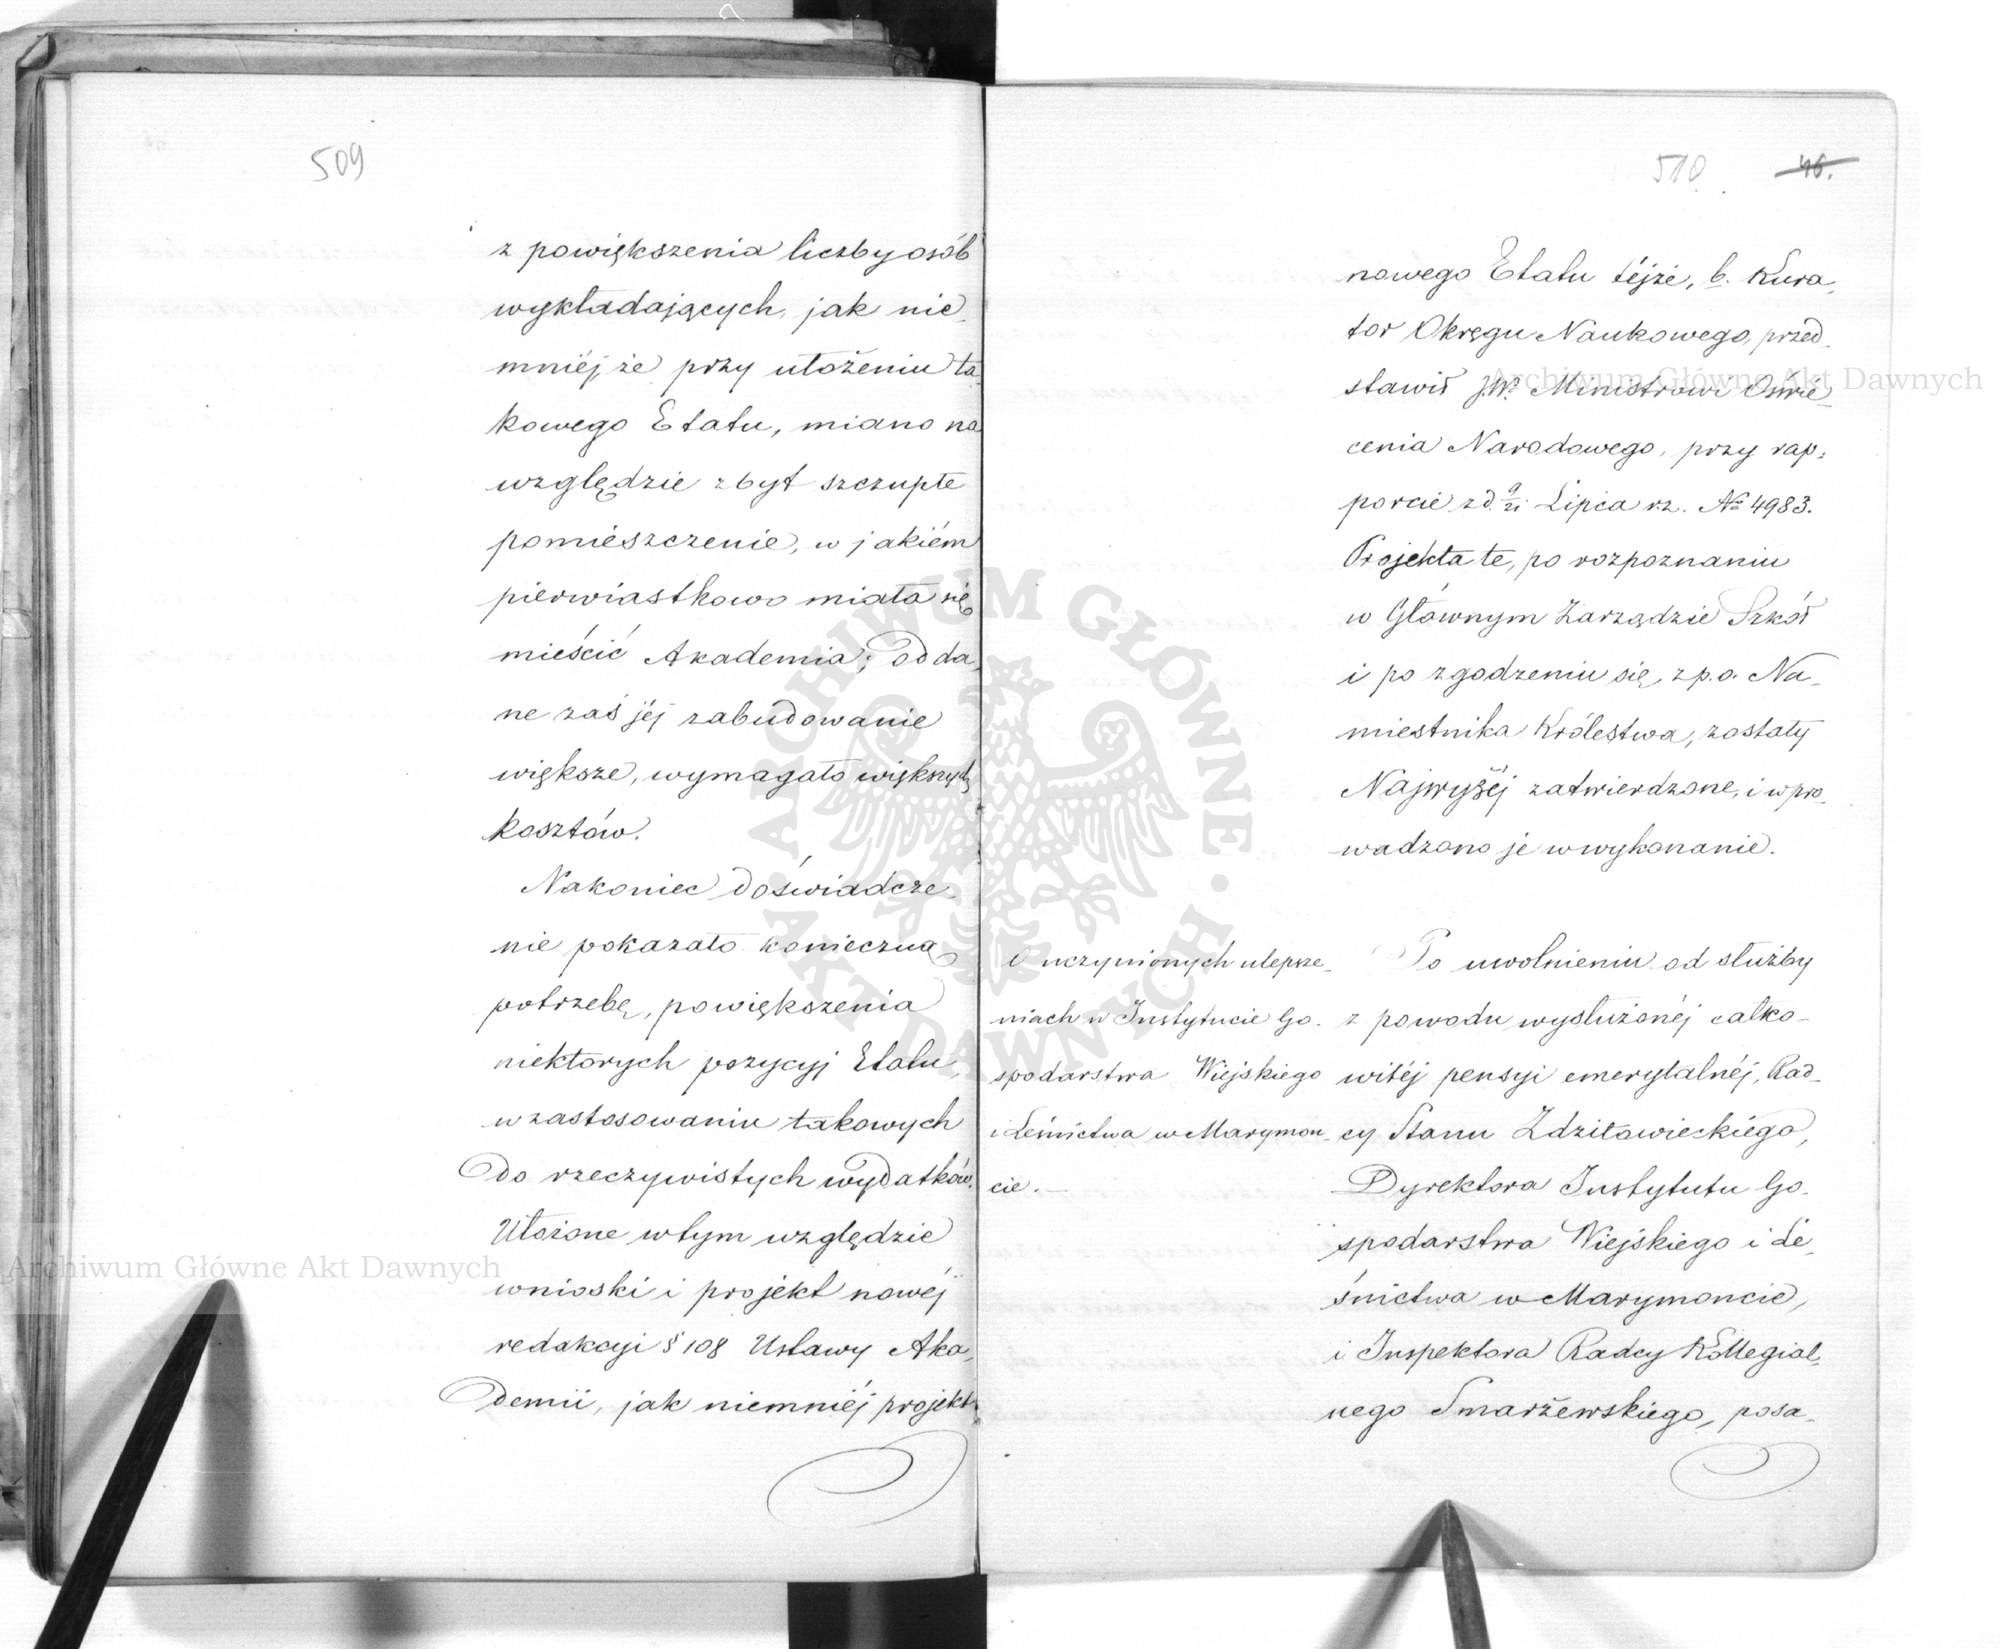 509
z powiększenia liczby osób
wykładających, jak nie-
mniéj, że przy ułożeniu ta-
kowego Etatu, miano na
względzie zbyt szczupłe
pomieszczenie, w jakiém
pierwiastkowo miała się
mieścić Akademia; odda-
ne zaś jéj zabudowanie
większe, wymagało większych
kosztów.
Nakoniec doświadcze-
nie pokazało konieczną
potrzebę, powiększenia
niektorych pozycyj Etatu,
w zastosowaniu takowych
do rzeczywistych wydatków.
Ułożone w tym względzie
wnioski i projekt nowéj
redakcyi § 108 Ustawy Aka-
demii, jak niemniéj projekt
510 46.
nowego Etatu téjże, b. Kura-
tor Okręgu Naukowego, przed-
stawił JW. Ministrowi Oświe-
cenia Narodowego, przy rap-
porcie z d. 9/21 Lipca r.z. № 4983.
Projekta te, po rozpoznaniu
w Głównym Zarządzie Szkół
i po zgodzeniu się, z p.o. Na-
miestnika Królestwa, zostały
Najwyżéj zatwierdzone, i wpro-
wadzono je w wykonanie.
O uczynionych ulepsze-
niach w Instytucie Go-
spodarstwa Wiejskiego
i Leśnictwa w Marymon-
cie. —
Po uwolnieniu od służby
z powodu wysłużonéj całko-
witéj pensyi emerytalnéj, Rad-
cy Stanu Zdzitowieckiégo,
Dyrektora Instytutu Go-
spodarstwa Wiejskiego i Le-
śnictwa w Marymoncie,
i Inspektora Radcy Kollegial-
nego Smarżewskiego, posa-
Archiwum Główne Akt Dawnych
Archiwum Główne Akt Dawnych
ARCHIWUM GŁÓWNE · AKT DAWNYCH ·